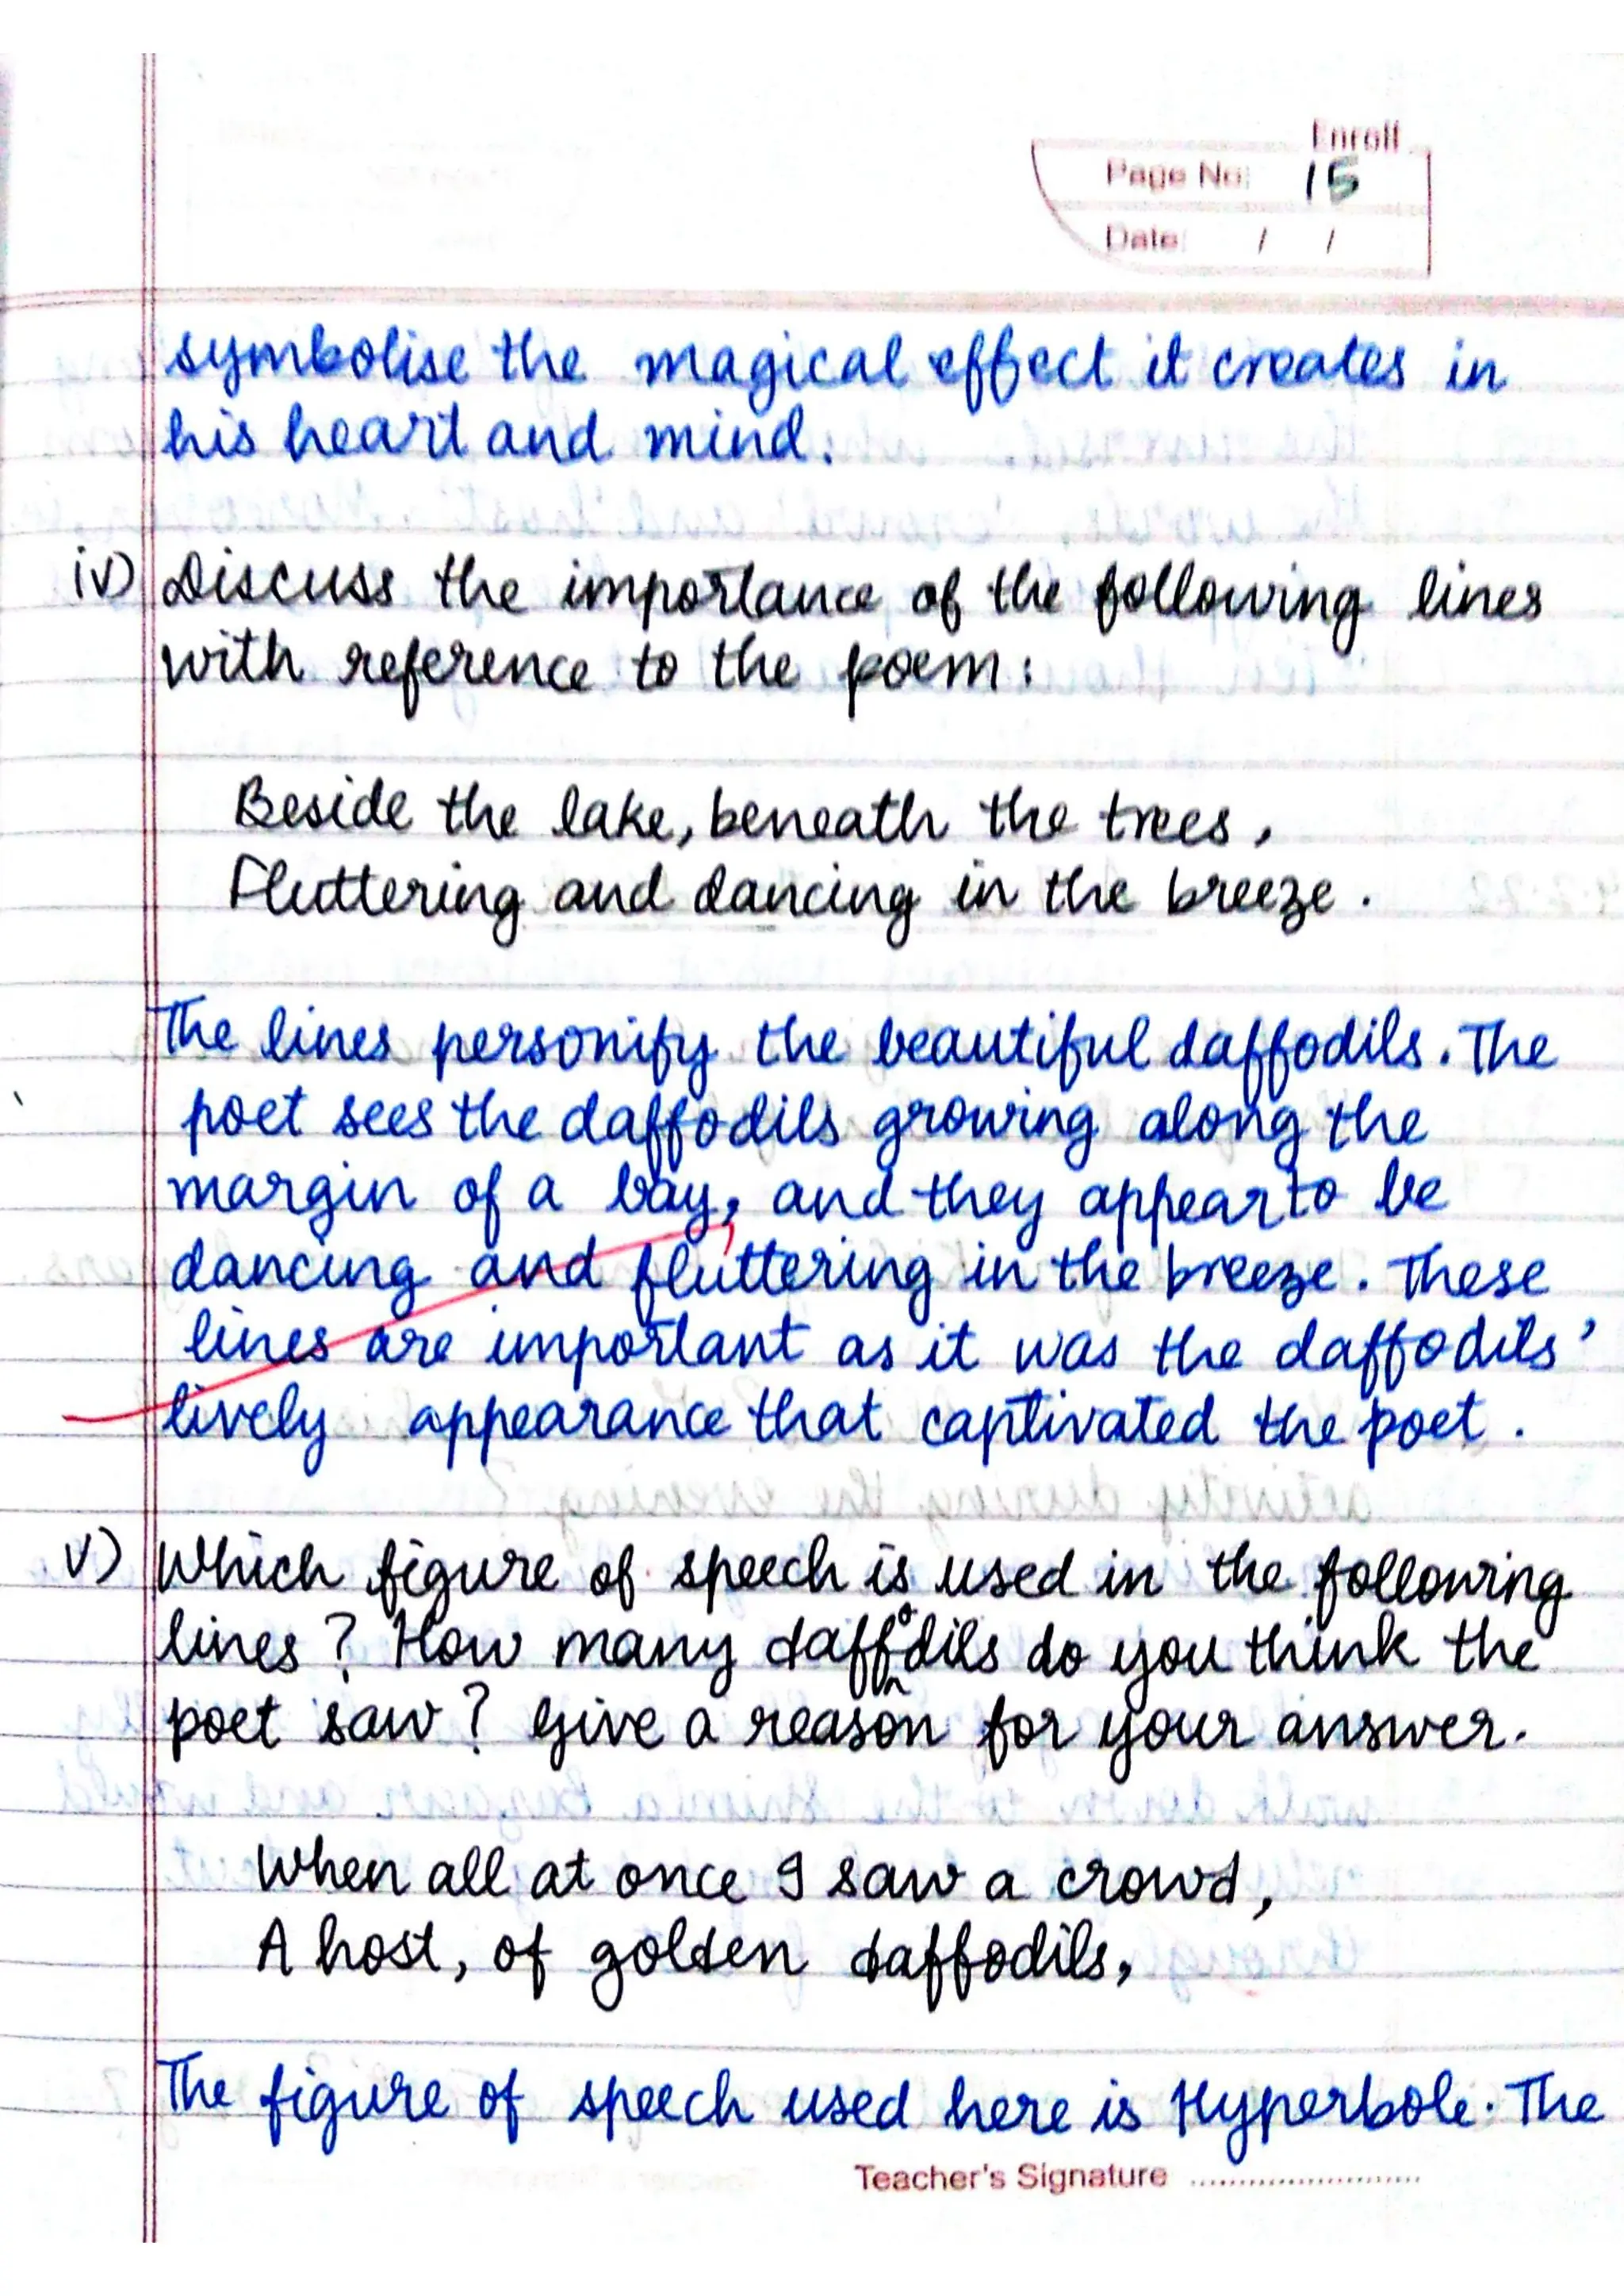 Enroll
Page No: 15
Date: / /
symbolise the magical effect it creates in
his heart and mind.
iv) Discuss the importance of the following lines
with reference to the poem:
Beside the lake, beneath the trees,
Fluttering and dancing in the breeze.
The lines personify the beautiful daffodils. The
poet sees the daffodils growing along the
margin of a bay, and they appear to be
dancing and fluttering in the breeze. These
lines are important as it was the daffodils'
lively appearance that captivated the poet.
v) Which figure of speech is used in the following
lines? How many daffodils do you think the
poet saw? Give a reason for your answer.
When all at once I saw a crowd,
A host, of golden daffodils,
The figure of speech used here is Hyperbole. The
Teacher's Signature ........................